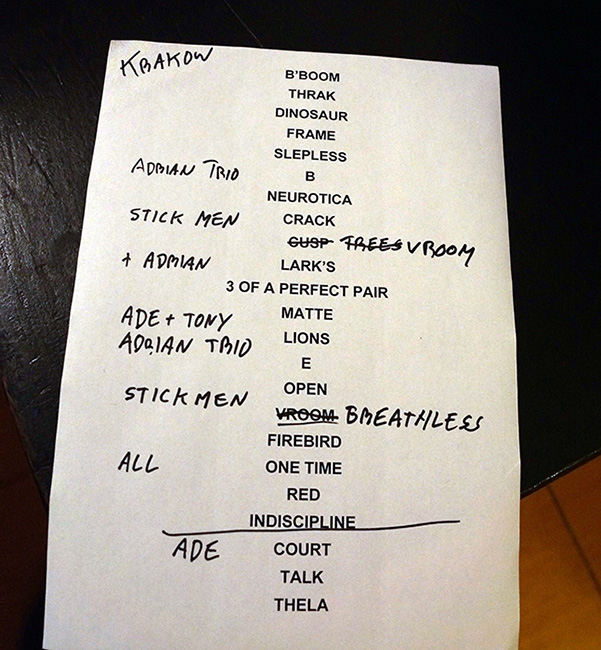 KRAKOW
B'BOOM
THRAK
DINOSAUR
FRAME
SLEPLESS
ADRIAN TRIO B
NEUROTICA
STICK MEN CRACK
CUSP TREES VROOM
+ ADRIAN LARK'S
3 OF A PERFECT PAIR
ADE + TONY MATTE
ADRIAN TRIO LIONS
E
STICK MEN OPEN
VROOM BREATHLESS
FIREBIRD
ALL ONE TIME
RED
INDISCIPLINE
ADE COURT
TALK
THELA